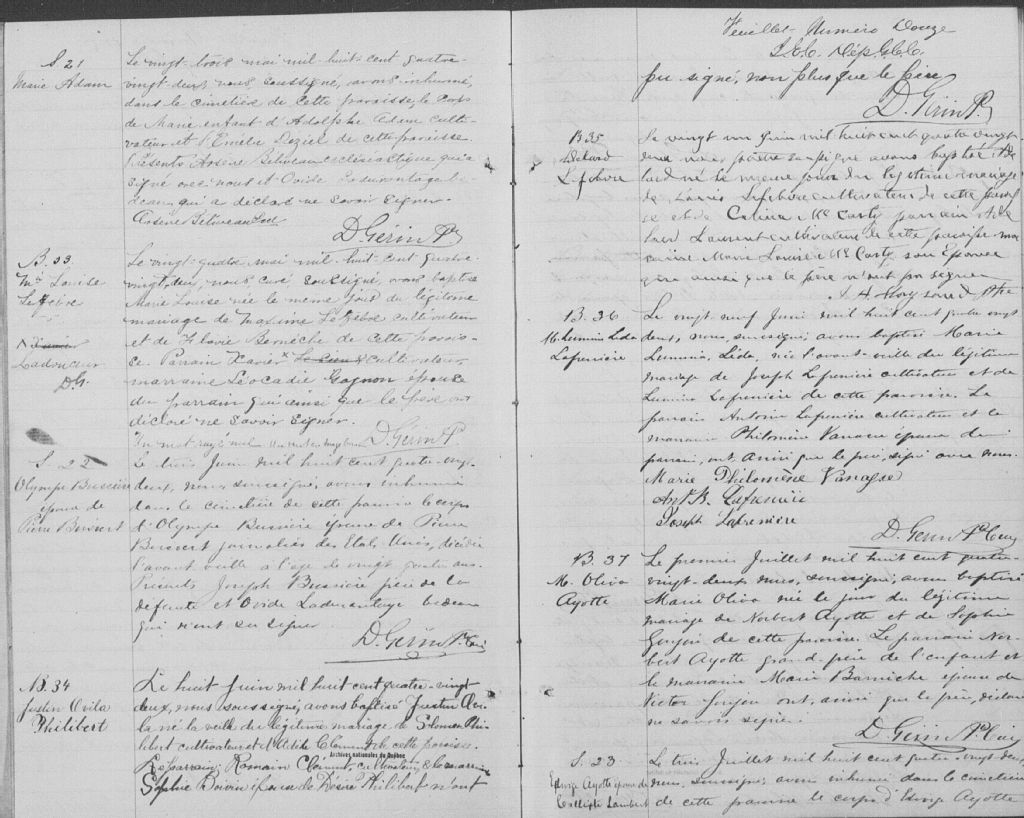 S. 21
Marie Adam
Le vingt-trois mai mil huit-cent quatre-
vingt-deux, nous soussigné, avons inhumé,
dans le cimetière de cette paroisse, le corps
de Marie enfant d'Adolphe Adam culti-
vateur et d'Emélie Deziel de cette paroisse
Présents Arsène Béliveau ecclésiastique qui a
signé avec nous et Ovide Ladurantaye be-
deau, qui a déclaré ne savoir signer.
Arsène Béliveau Eccl.
D. Gérin Ptr
B. 33.
Mie Louise
Lefebvre
Ladouceur
D.G.
Le vingt-quatre mai mil huit-cent quatre-
vingt-deux, nous curé soussigné, avons baptisé
Marie Louise née le même jour du légitime
mariage de Maxime Lefebvre cultivateur
et de Flavie Bernèche de cette parois-
se. Parrain Xavier cultivateur
marraine Léocadie Gagnon épouse
du parrain qui ainsi que le père ont
déclaré ne savoir signer.
Un mot rayé nul D. Gérin P.
S. 22
Olympe Bussière
épouse de
Pierre Boisvert
Le trois Juin mil huit cent quatre-vingt-
deux, nous soussigné, avons inhumé
dans le cimetière de cette paroisse le corps
d'Olympe Bussière épouse de Pierre
Boisvert journalier des Etats Unis, décédée
l'avant veille à l'age de vingt quatre ans.
Présents Joseph Bussière père de la
défunte et Ovide Ladurantaye bedeau
qui n'ont su signer
D. Gérin Ptr Curé
B. 34
Justin Ovila
Philibert
Le huit Juin mil huit cent quatre-vingt
deux, nous soussigné, avons baptisé Justin Ovi-
la né la veille du légitime mariage de Salomon Phi-
libert cultivateur et d'Adile Clément de cette paroisse.
Archives nationales du Québec
Le parrain Romain Clément, cultivateur & la marraine
Sophie Boivin épouse de Désiré Philibert n'ont
Feuillet Numéro Douze
Dép. G.C.C.
pu signé, non plus que le père
D. Gérin P.
B. 35
Adelard
Lefebvre
Le vingt un Juin mil huit cent quatre vingt
deux nous prêtre soussigné avons baptisé Ade
lard né le même jour du légitime mariage
de Louis Lefebvre cultivateur de cette parois
se et de Carty parrain Ade
lard Laurent cultivateur de cette paroisse mar
raine Marie Louise Mc Carty son Epouse
qui ainsi que le père n'ont pu signer
Ptre
B. 36
M. Lumina Lida
Lafrenière
Le vingt-neuf Juin mil huit cent quatre vingt
deux, nous, soussigné, avons baptisé Marie
Lumina, Lida, née l'avant-veille du légitime
mariage de Joseph Lafrenière cultivateur et de
Lumina Lafrenière de cette paroisse. Le
parrain Antoine Lafrenière cultivateur et la
marraine Philomène Vanasse épouse du
parrain, ont ainsi que le père, signé avec nous.
Marie Philomène Vanasse
Ant. Lafrenière
Joseph Lafrenière
D. Gérin Ptr Curé
B. 37
M. Oliva
Ayotte
Le premier Juillet mil huit cent quatre
vingt-deux, nous, soussigné, avons baptisé
Marie Oliva née le jour du légitime
mariage de Norbert Ayotte et de Sophie
Goyou de cette paroisse. Le parrain Nor-
bert Ayotte grand-père de l'enfant et
la marraine Marie Barniche épouse de
Victor Goyou ont, ainsi que le père, déclaré
ne savoir signer.
D. Gérin Ptr Curé
S. 23
Edwige Ayotte épouse de
Calixte Lambert
Le trois Juillet mil huit cent quatre-vingt-deux,
nous, soussigné, avons inhumé dans le cimetière
de cette paroisse le corps d'Edwige Ayotte